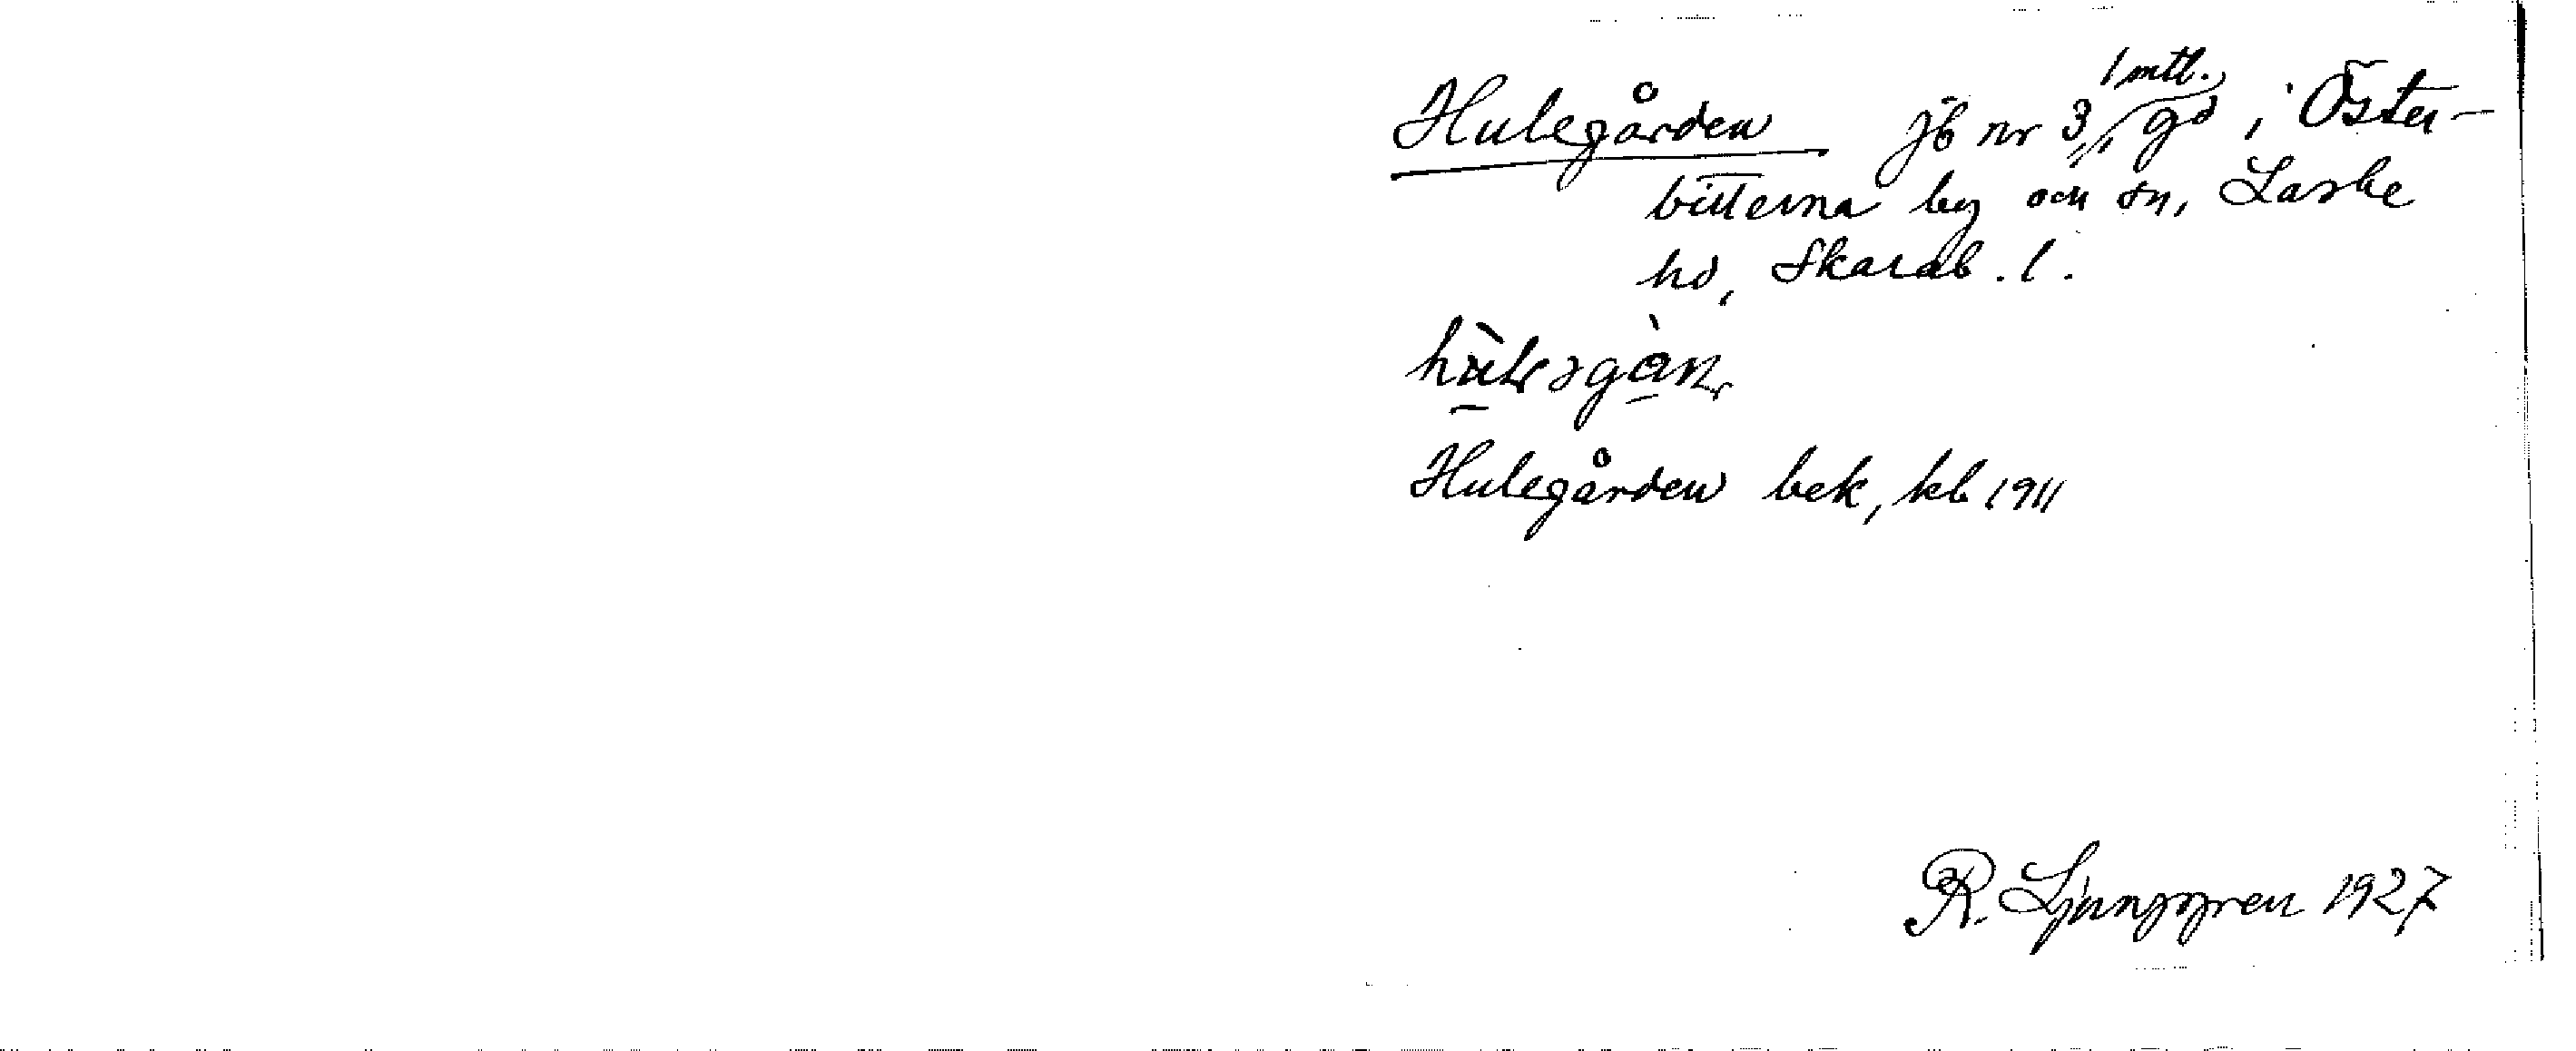 Hulegården jb nr 3, 1 mtl. gd i Öster-
bitterna by och sn, Laske
hd, Skarab. l.
Hulegården bek, kb 1911
R. Ljunggren 1927